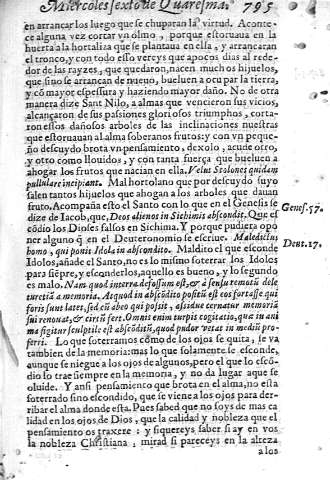 Miercoles sexto de Quaresma. 795
en arrancar los luego que se chuparan la virtud. Aconte-
ce alguna vez cortar vn olmo, porque estoruaua en la
huerta a la hortaliza que se plantaua en ella, y arrancaran
el tronco, y con todo esso vereys que a pocos dias al rede-
dor de las rayzes, que quedaron, nacen muchos hijuelos,
que sino se arrancan de nueuo, bueluen a ocupar la tierra,
y cõ mayor espessura y haziendo mayor daño. No de otra
manera dize Sant Nilo, a almas que vencieron sus vicios,
alcançaron de sus passiones gloriosos triumphos, corta-
ron estos dañosos arboles de las inclinaciones nuestras
que estoruauan al alma soberanos frutos: y con vn peque-
ño descuydo brota vn pensamiento, dexolo, acude otro,
y otro como llouidos, y con tanta fuerça que bueluen a
ahogar los frutos que nacian en ella. Velut Stolones quidam
pullulare incipiant. Mal hortolano que por descuydo suyo
salen tantos hijuelos que ahogan a los arboles que dauan
fruto. Acompaña esto el Santo con lo que en el Genesis se
dize de Iacob, que, Deos alienos in Sichimis abscondit. Que es
cõdio los Dioses falsos en Sichima. Y porque pudiera opo
ner alguno q̃ en el Deuteronomio se escriue. Maledictus
homo, qui ponit Idola in abscondito. Maldito el que esconde
Idolos, añade el Santo, no es lo mismo soterrar los Idolos
para siẽpre, y esconderlos, aquello es bueno, y lo segundo
es malo. Nam quod in terra defossum est, & à sensu remotũ dele
tur etiã a memoria. At quod in abscõdito positũ est eos fortasse qui
foris sunt latet, sed eũ abeo qui posuit, assidue cernatur memoriã
sui renouat, & circũ fert. Omnis enim turpis cogitatio, quæ in ani
ma figitur sculptile est abscõditũ, quod pudor vetat in mediũ pro-
ferri. Lo que soterramos como de los ojos se quita, se va
tambien de la memoria: mas lo que solamente se esconde,
aunque se niegue a los ojos de algunos, pero el que lo escõ-
dio lo trae siempre en la memoria, y no da lugar a que se
oluide. Y ansi pensamiento que brota en el alma, no esta
soterrado sino escondido, que se viene a los ojos para der-
ribar el alma donde esta. Pues sabed que no soys de mas ca
lidad en los ojos de Dios, que la calidad y nobleza que el
pensamiento os traxere: y si quereys saber si ay en vos
la nobleza Christiana, mirad si pareceys en la alteza
a los
Genes. 37.
Deut. 27.